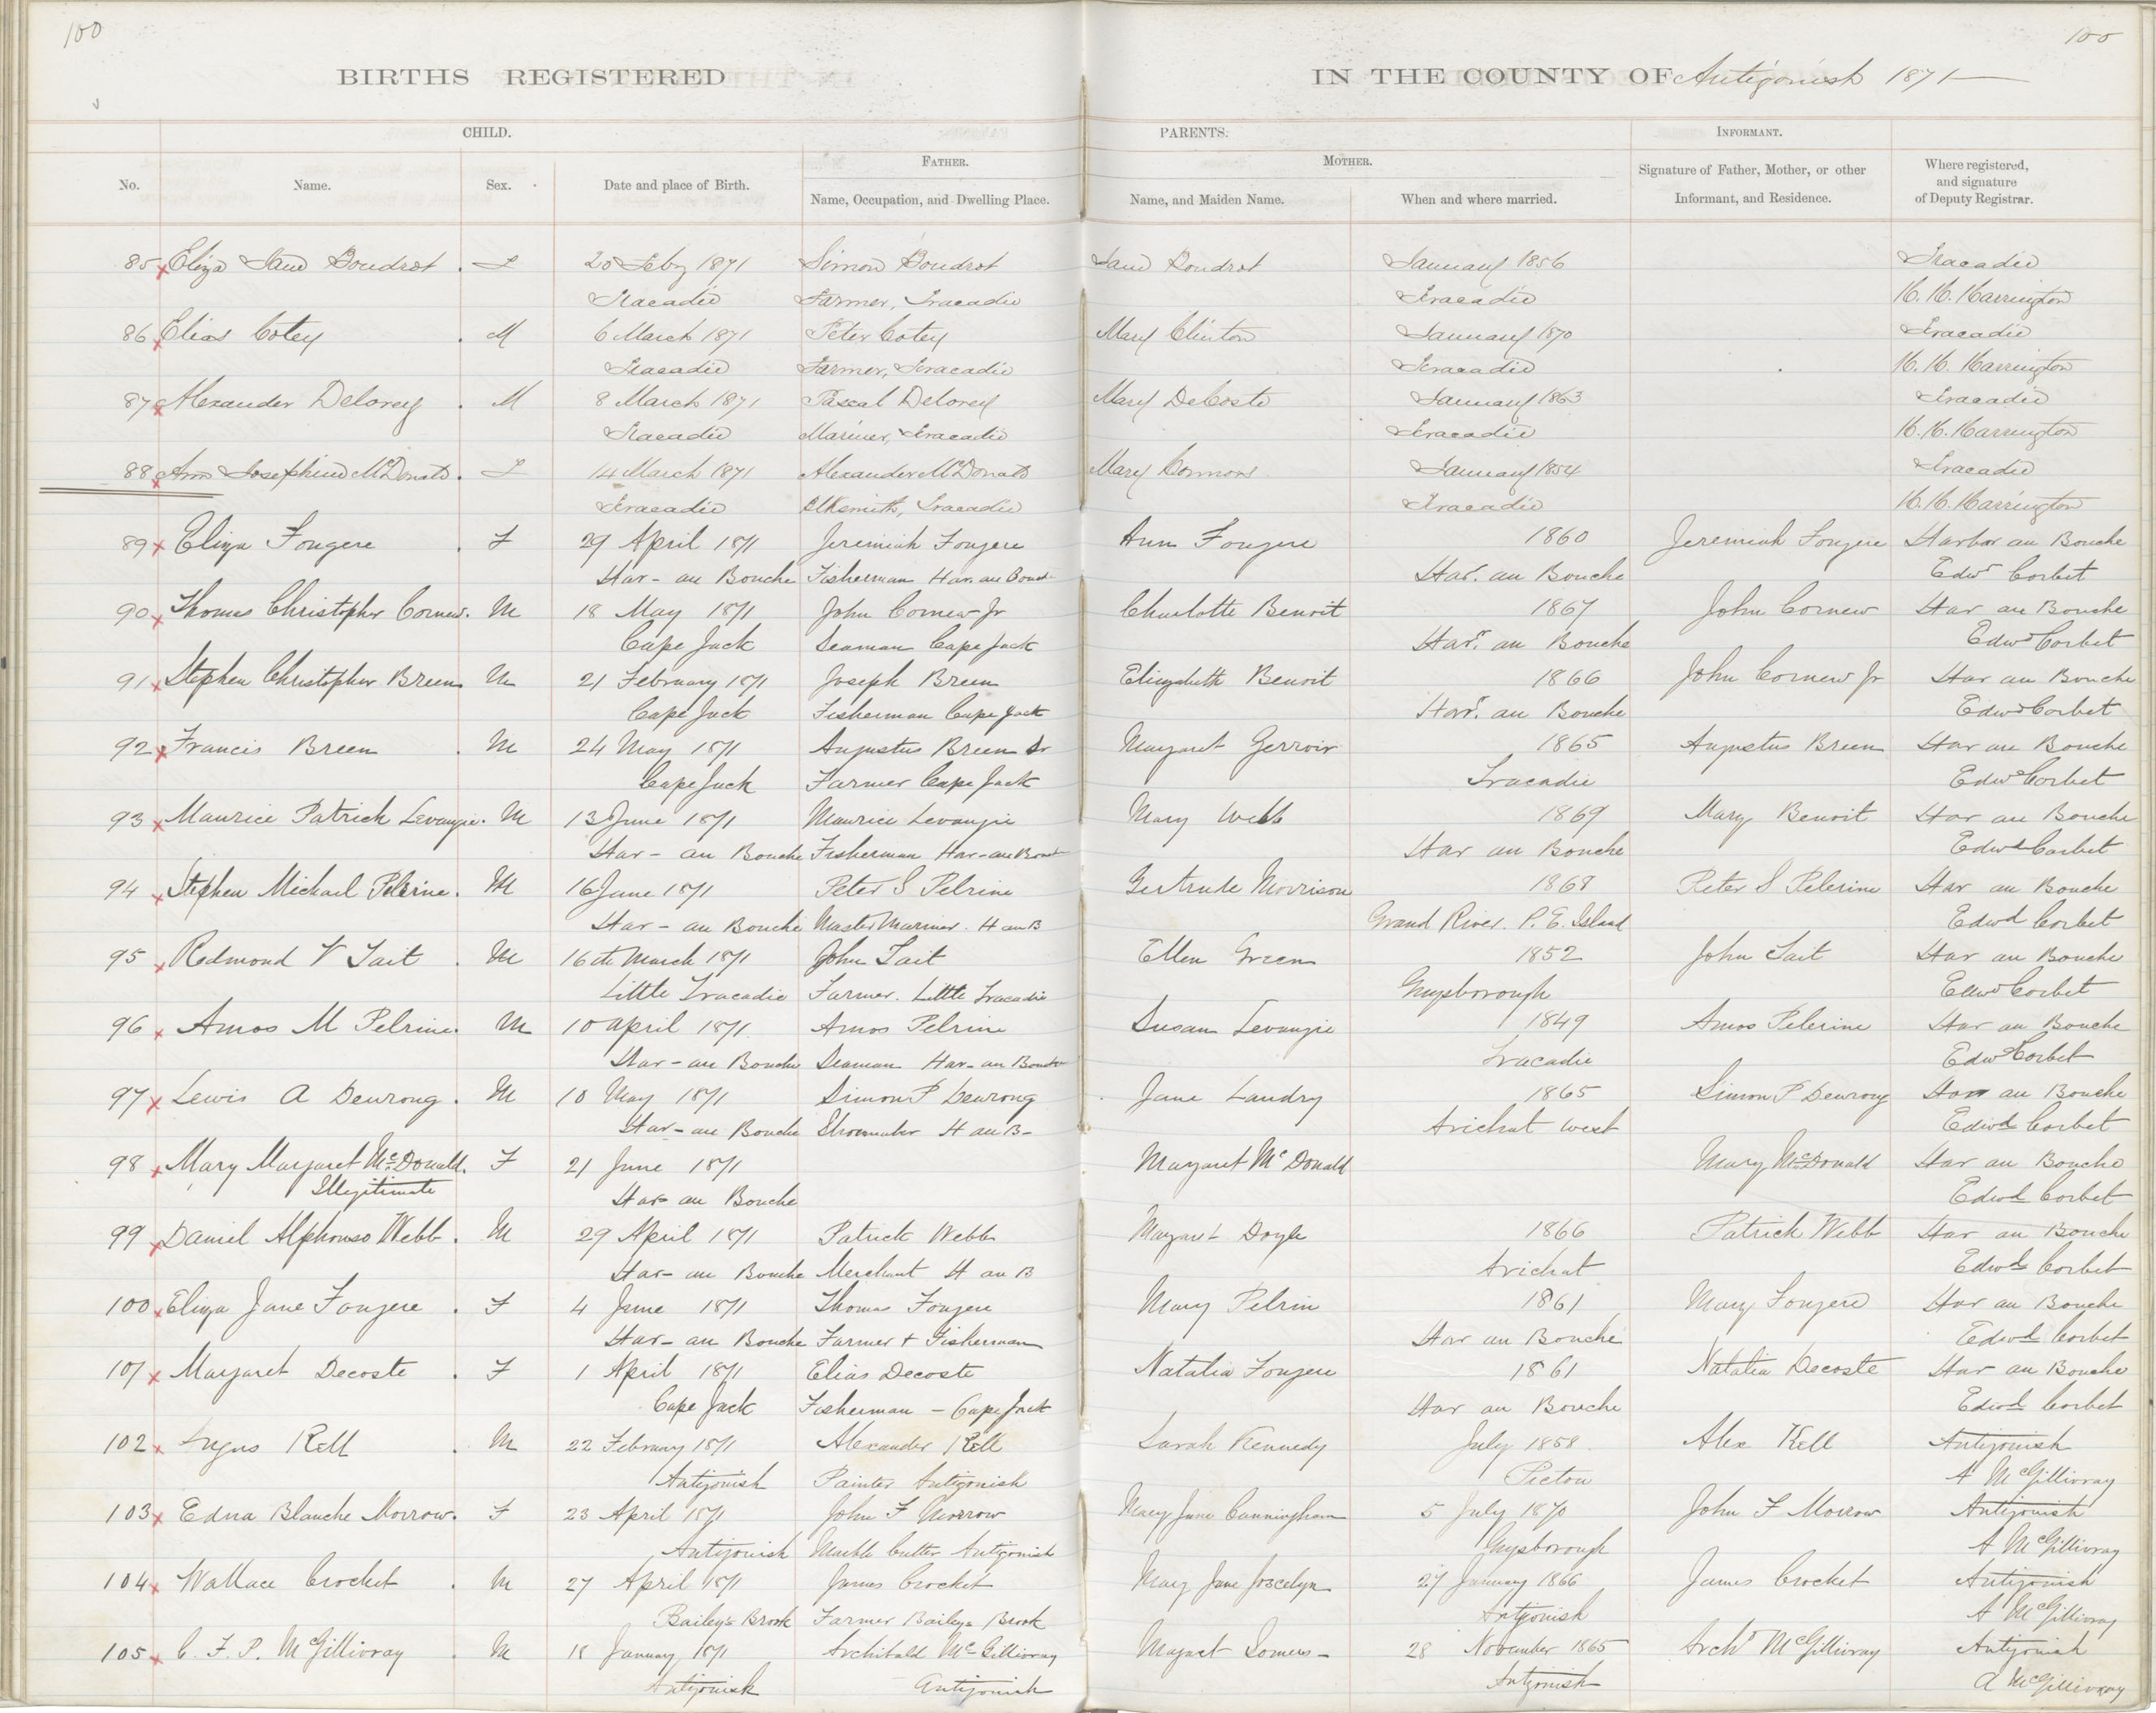 100
100
BIRTHS REGISTERED IN THE COUNTY OF Antigonish 1871
CHILD. PARENTS. INFORMANT.
FATHER. MOTHER.
No. Name. Sex. Date and place of Birth. Name, Occupation, and Dwelling Place. Name, and Maiden Name. When and where married. Signature of Father, Mother, or other Informant, and Residence. Where registered, and signature of Deputy Registrar.
85 Eliza Jane Boudrot F 20 Feby 1871 Simon Boudrot Jane Boudrot January 1856 Tracadie
Tracadie Farmer, Tracadie Tracadie H. H. Harrington
86 Elias Cotey M 6 March 1871 Peter Cotey Mary Clinton January 1870 Tracadie
Tracadie Farmer, Tracadie Tracadie H. H. Harrington
87 Alexander Delorey M 8 March 1871 Pascal Delorey Mary DeCoste January 1863 Tracadie
Tracadie Mariner, Tracadie Tracadie H. H. Harrington
88 Ann Josephine McDonald F 14 March 1871 Alexander McDonald Mary Connors January 1854 Tracadie
Tracadie Blksmith, Tracadie Tracadie H. H. Harrington
89 Eliza Fougere F 29 April 1871 Jeremiah Fougere Ann Fougere 1860 Jeremiah Fougere Harbor au Bouche
Har - au Bouche Fisherman Har. au Bouche Har. au Bouche Edwd Corbet
90 Thomas Christopher Cornew M 18 May 1871 John Cornew Jr Charlotte Benoit 1867 John Cornew Har au Bouche
Cape Jack Seaman Cape Jack Harr. au Bouche Edwd Corbet
91 Stephen Christopher Breen M 21 February 1871 Joseph Breen Elizabeth Benoit 1866 John Cornew Jr Har au Bouche
Cape Jack Fisherman Cape Jack Harr. au Bouche Edwd Corbet
92 Francis Breen M 24 May 1871 Augustus Breen Sr Margaret Gerroir 1865 Augustus Breen Har au Bouche
Cape Jack Farmer Cape Jack Tracadie Edwd Corbet
93 Maurice Patrick Levangie M 13 June 1871 Maurice Levangie Mary Webb 1869 Mary Benoit Har au Bouche
Har - au Bouche Fisherman Har-au Bouche Har au Bouche Edwd Corbet
94 Stephen Michael Pelrine M 16 June 1871 Peter S Pelrine Gertrude Morrison 1868 Peter S Pelerine Har au Bouche
Har - au Bouche Master Mariner. H au B Grand River. P. E. Island Edwd Corbet
95 Redmond V Tait M 16th March 1871 John Tait Ellen Green 1852 John Tait Har au Bouche
Little Tracadie Farmer. Little Tracadie Guysborough Edwd Corbet
96 Amos M Pelrine. M 10 April 1871 Amos Pelrine Susan Levangie 1849 Amos Pelerine Har au Bouche
Har - au Bouche Seaman Har-au Bouche Tracadie Edwd Corbet
97 Lewis A Deurong M 10 May 1871 Simon P Deurong Jane Landry 1865 Simon P Deurong Har au Bouche
Har - au Bouche Shoemaker H au B- Arichat West Edwd Corbet
98 Mary Margaret McDonald. F 21 June 1871 Margaret McDonald Mary McDonald Har au Bouche
Illegitimate Har au Bouche Edwd Corbet
99 Daniel Alphonso Webb M 29 April 1871 Patrick Webb Margaret Doyle 1866 Patrick Webb Har au Bouche
Har - au Bouche Merchant H au B Arichat Edwd Corbet
100 Eliza Jane Fougere F 4 June 1871 Thomas Fougere Mary Pelrin 1861 Mary Fougere Har au Bouche
Har - au Bouche Farmer & Fisherman Har au Bouche Edwd Corbet
101 Margaret Decoste F 1 April 1871 Elias Decoste Natalia Fougere 1861 Natalia Decoste Har au Bouche
Cape Jack Fisherman - Cape Jack Har au Bouche Edwd Corbet
102 Angus Kell M 22 February 1871 Alexander Kell Sarah Kennedy July 1858 Alex Kell Antigonish
Antigonish Painter Antigonish Pictou A McGillivray
103 Edna Blanche Morrow. F 23 April 1871 John F Morrow Mary Jane Cunningham 5 July 1870 John F Morrow Antigonish
Antigonish Marble Cutter Antigonish Guysborough A McGillivray
104 Wallace Crocket M 27 April 1871 James Crocket Mary Jane Joscelyn 27 January 1866 James Crocket Antigonish
Bailey's Brook Farmer Baileys Brook Antigonish A McGillivray
105 C. F. P. McGillivray M 18 January 1871 Archibald McGillivray Margaret Somers 28 November 1865 Archd McGillivray Antigonish
Antigonish Antigonish Antigonish A McGillivray